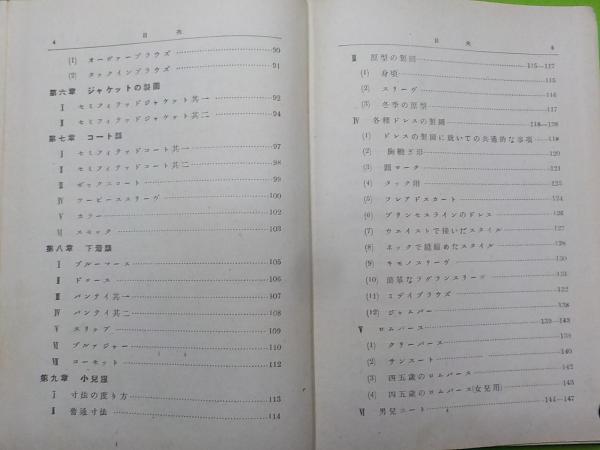 4
目次
(1) オーヴァーブラウズ 90
(2) タックインブラウズ 91
第六章 ジャケットの製圖
I セミフィテッドジャケット其一 92
II セミフィテッドジャケット其二 94
第七章 コート類
I セミフィテッドコート其一 97
II セミフィテッドコート其二 98
III ボックスコート 99
IV ツーピーススリーヴ 100
V カラー 102
VI スモック 103
第八章 下着類
I ブルーマース 105
II ドロース 106
III パンティ其一 107
IV パンティ其二 108
V スリップ 109
VI ブラジャー 110
VII コーセット 112
第九章 小兒服
I 寸法の度り方 113
II 普通寸法 114
目次
III 原型の製圖 115—117
(1) 身頃 115
(2) スリーヴ 116
(3) 冬季の原型 117
IV 各種ドレスの製圖 118—138
(1) ドレスの製圖に就いての共通的な事項 118
(2) 胸 120
(3) 肩ヨーク 121
(4) タック 123
(5) フレアドスカート 124
(6) プリンセスラインのドレス 126
(7) ウエイストで接いだスタイル 127
(8) ネックで縫縮めたスタイル 128
(9) キモノスリーヴ 130
(10) 簡單なラグランスリーヴ 131
(11) ミデイブラウズ 132
(12) ジャムパー 138
V ロムパース 139—143
(1) クリーパース 139
(2) サンスート 140
(3) 四五歳のロムパース 142
(4) 四五歳のロムパース(女兒用) 143
VI 男兒スート 144—147